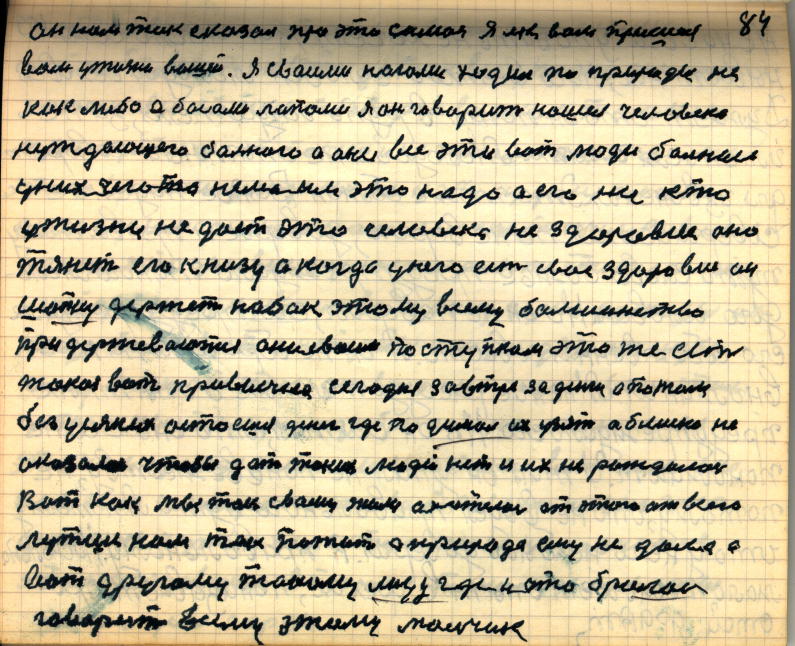 84
он нам так сказал про это самое я не вам пришол
вам у жизни вашей. Я своими ногами ходил по природе не
как либо а босыми лапами я он говорит нашел человека
нуждающего балного а они все эти вот люди балные
у них чегото немалым это надо а его ни кто
у жизни не дает это человека не здоровия оно
тянет его книзу а когда у него ест свое здоровие он
шапку держет набак этому всему балшинство
придерживаются поступком это же ест
такая вот привычка сегодня завтра задения а потом
без усяких остоеця денег где по думал их узят а близко не
оказалос чтобы дат таких людей нет и их не рождалос
Вот как мы так своим жили а хотелос от этого от всего
лутше нам так пожит а природа ему не дала а
вот другому такому лицу где и это бралос
говорит всему этому малчик